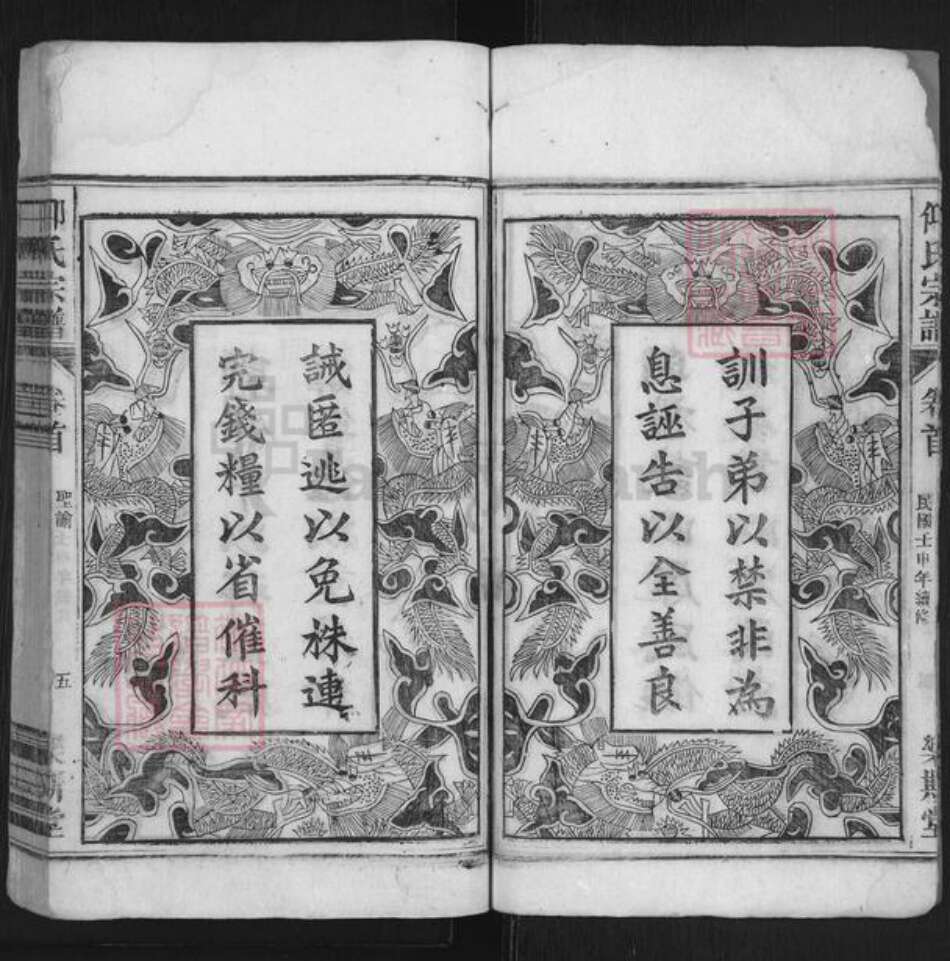 仰氏宗譜
卷首
民國壬申年續修
螽斯堂
訓子弟以禁非為
息誣告以全善良
誡匿逃以免株連
完錢糧以省催科
仰氏宗譜
卷首
聖諭
五